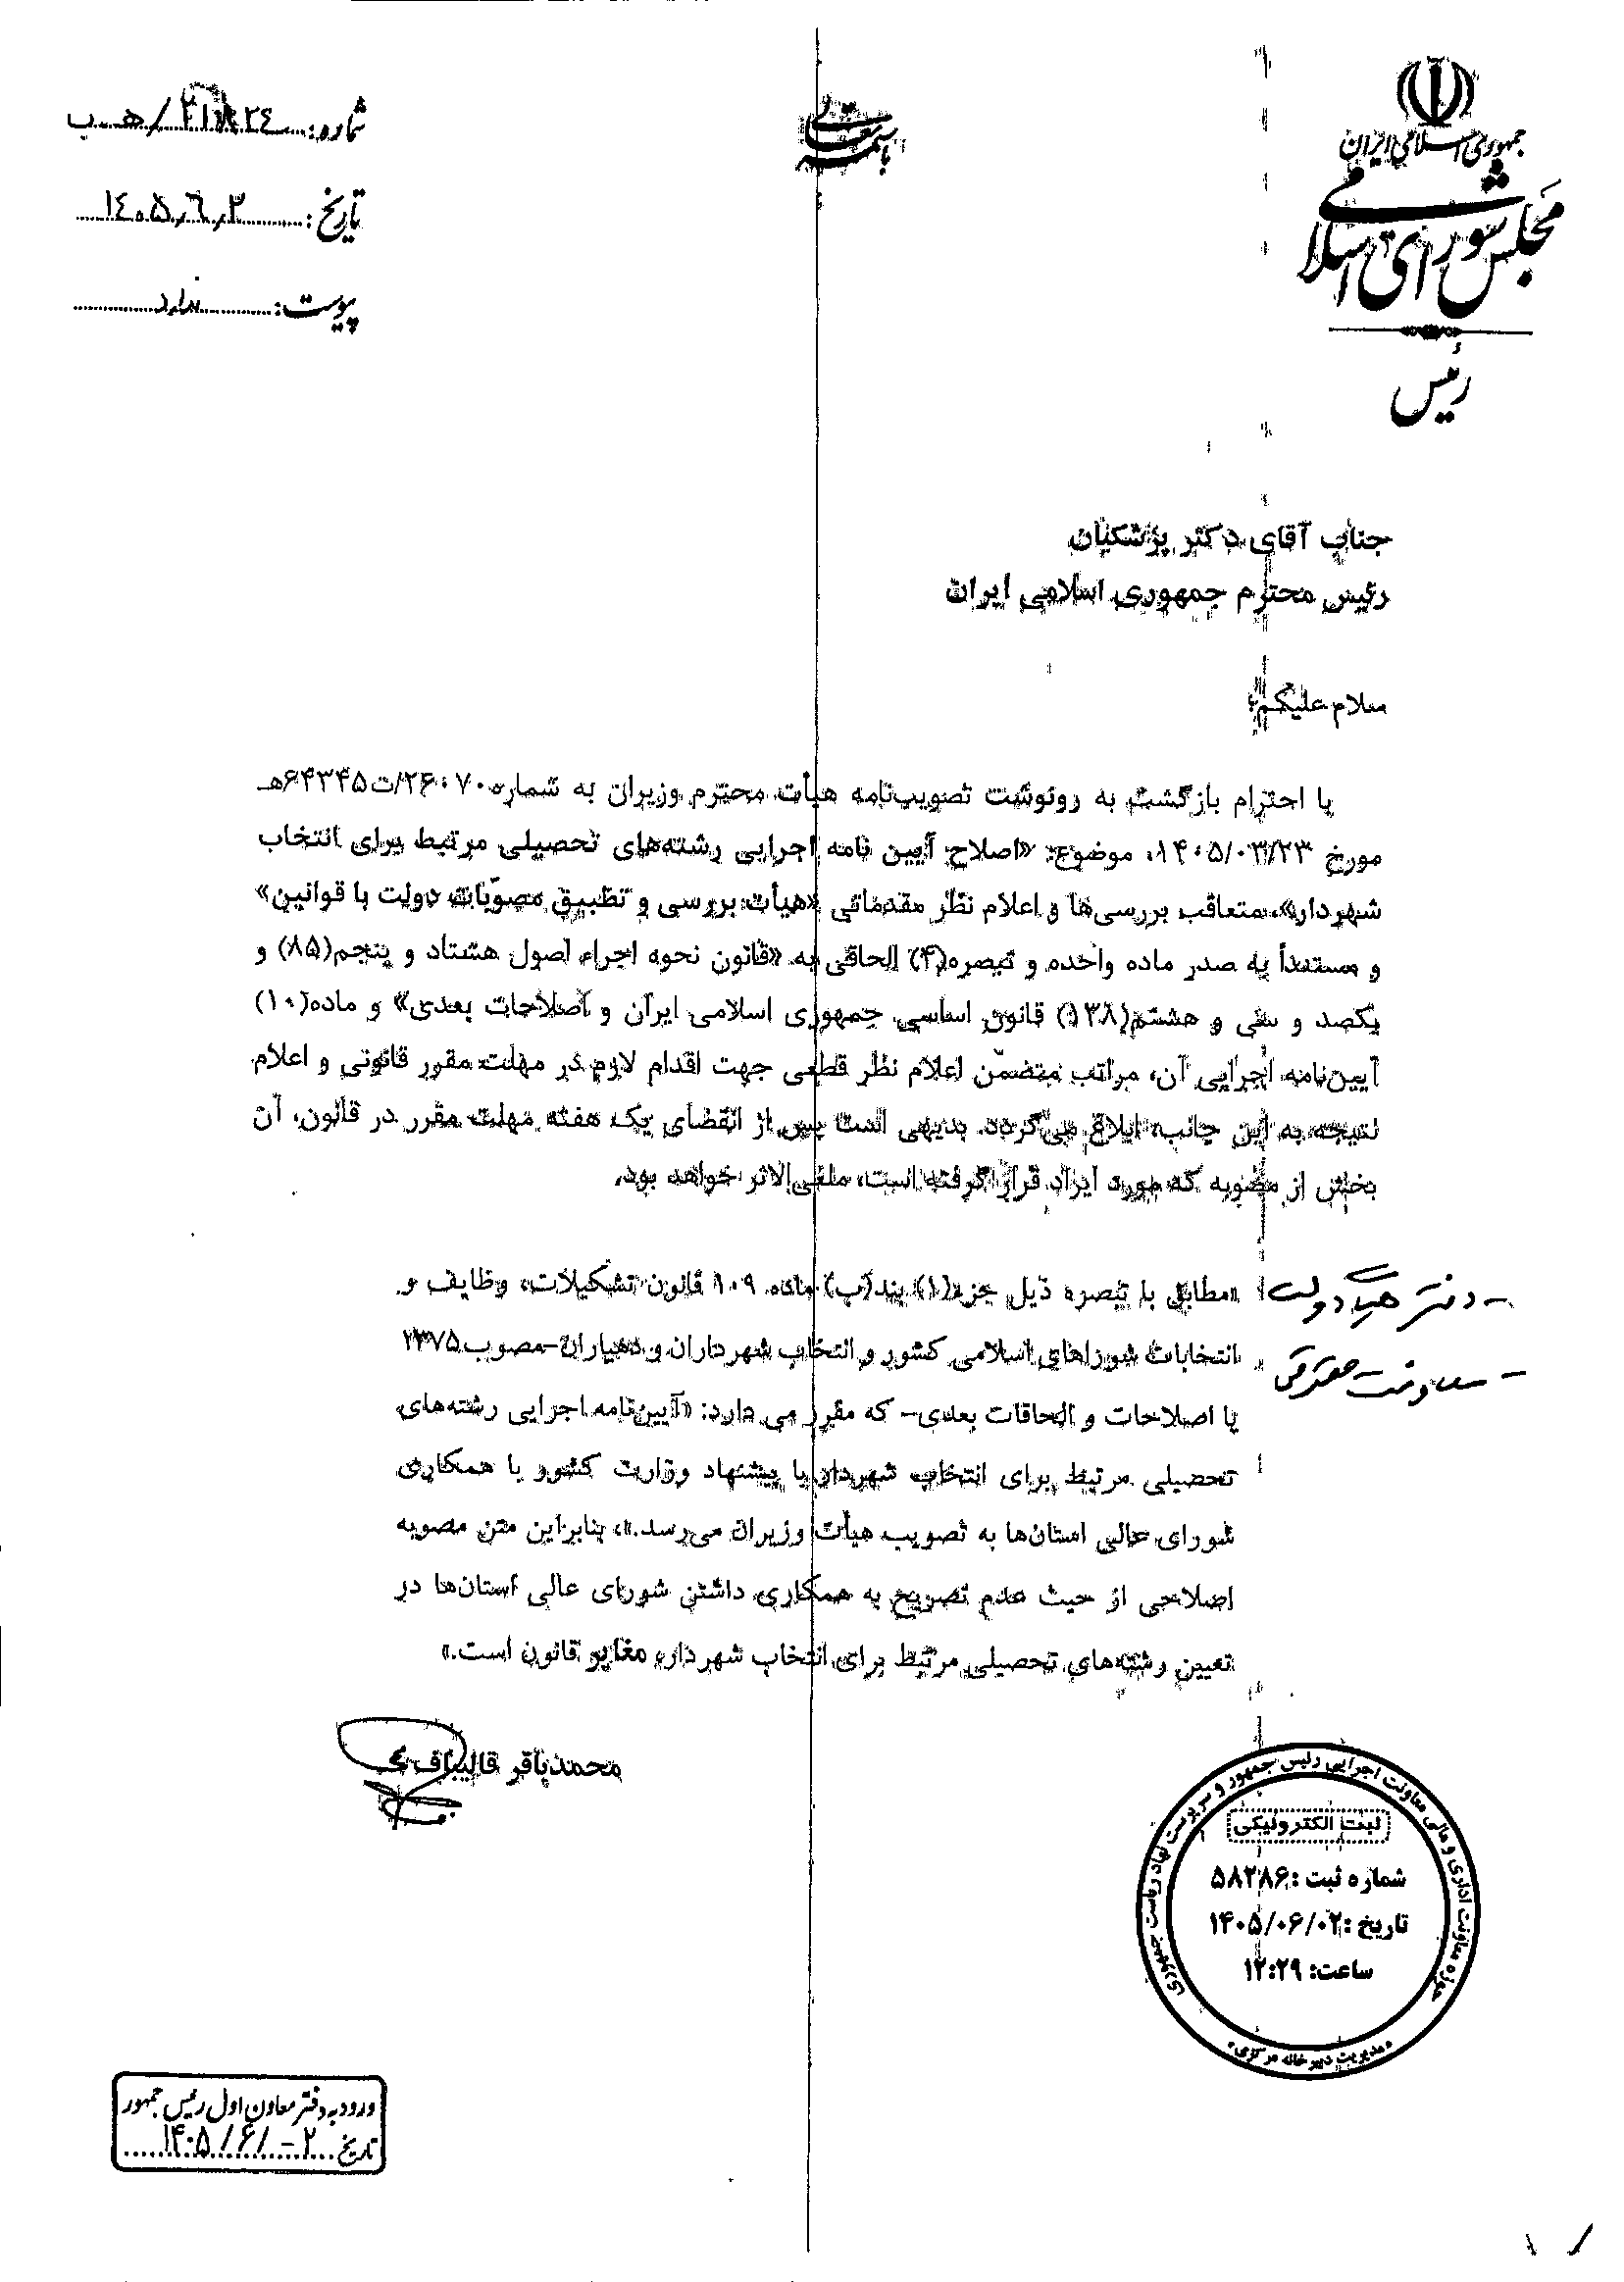 باسمه تعالی
جمهوری اسلامی ایران
مجلس شورای اسلامی
رئیس
شماره: /هـ ب
تاریخ: ۱۴۰۵٫۶٫۲
پیوست: ندارد
جناب آقای دکتر پزشکیان
رئیس محترم جمهوری اسلامی ایران
سلام علیکم؛
با احترام بازگشت به رونوشت تصویب‌نامه هیأت محترم وزیران به شماره ۲۶۰۷۰/ت۶۴۳۴۵هـ
مورخ ۱۴۰۵/۰۳/۲۳، موضوع: «اصلاح آیین نامه اجرایی رشته‌های تحصیلی مرتبط برای انتخاب
شهردار»، متعاقب بررسی‌ها و اعلام نظر مقدماتی «هیأت بررسی و تطبیق مصوّبات دولت با قوانین»
و مستنداً به صدر ماده واحده و تبصره(۴) الحاقی به «قانون نحوه اجراء اصول هشتاد و پنجم(۸۵) و
یکصد و سی و هشتم(۱۳۸) قانون اساسی جمهوری اسلامی ایران و اصلاحات بعدی» و ماده(۱۰)
آیین‌نامه اجرایی آن، مراتب متضمّن اعلام نظر قطعی جهت اقدام لازم در مهلت مقرر قانونی و اعلام
نتیجه به این جانب، ابلاغ می‌گردد. بدیهی است پس از انقضای یک هفته مهلت مقرر در قانون، آن
بخش از مصوبه که مورد ایراد قرار گرفته است، ملغی‌الاثر خواهد بود.
«مطابق با تبصره ذیل جزء(۱) بند(پ) ماده ۱۰۹ قانون تشکیلات، وظایف و
انتخابات شوراهای اسلامی کشور و انتخاب شهرداران و دهیاران-مصوب ۱۳۷۵
با اصلاحات و الحاقات بعدی- که مقرر می دارد: «آیین‌نامه اجرایی رشته‌های
تحصیلی مرتبط برای انتخاب شهردار با پیشنهاد وزارت کشور با همکاری
شورای عالی استان‌ها به تصویب هیأت وزیران می‌رسد.»، بنابراین متن مصوبه
اصلاحی از حیث عدم تصریح به همکاری داشتن شورای عالی استان‌ها در
تعیین رشته‌های تحصیلی مرتبط برای انتخاب شهردار، مغایر قانون است.»
- دفتر هیأت دولت
- معاونت حقوقی
محمدباقر قالیباف
حوزه معاونت اداری و مالی معاونت اجرایی رئیس جمهور و سرپرست نهاد ریاست جمهوری
ثبت الکترونیکی
شماره ثبت: ۵۸۲۸۶
تاریخ: ۱۴۰۵/۰۶/۰۲
ساعت: ۱۲:۲۹
مدیریت دبیرخانه مرکزی
ورود به دفتر معاون اول رئیس جمهور
تاریخ ۱۴۰۵/۶/-۲